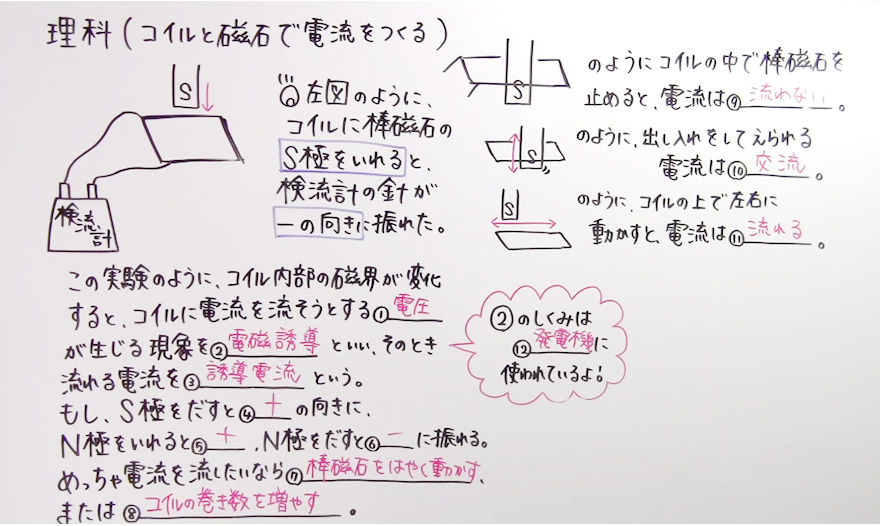 理科(コイルと磁石で電流をつくる)
S
検流計
左図のように、
コイルに棒磁石の
S極をいれると、
検流計の針が
－の向きに振れた。
この実験のように、コイル内部の磁界が変化
すると、コイルに電流を流そうとする①電圧
が生じる現象を②電磁誘導といい、そのとき
流れる電流を③誘導電流という。
もし、S極をだすと④＋の向きに、
N極をいれると⑤＋、N極をだすと⑥－に振れる。
めっちゃ電流を流したいなら⑦棒磁石をはやく動かす、
または⑧コイルの巻き数を増やす。
S
のようにコイルの中で棒磁石を
止めると、電流は⑨流れない。
S
のように、出し入れをしてえられる
電流は⑩交流。
S
のように、コイルの上で左右に
動かすと、電流は⑪流れる。
②のしくみは
⑫発電機に
使われているよ!